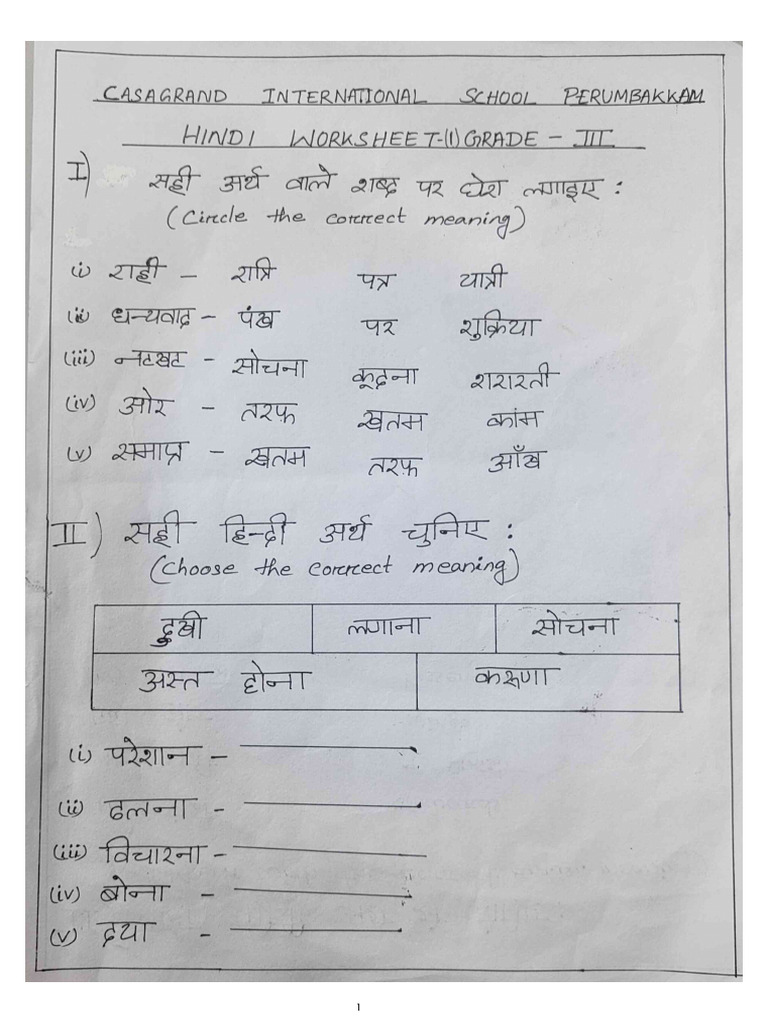 CASAGRAND INTERNATIONAL SCHOOL PERUMBAKKAM
HINDI WORKSHEET-(1) GRADE - III
I) सही अर्थ वाले शब्द पर घेरा लगाइए :
(Circle the correct meaning)
(i) राही - रात्रि पत्र यात्री
(ii) धन्यवाद - पंख पर शुक्रिया
(iii) नटखट - सोचना कूदना शरारती
(iv) ओर - तरफ़ खतम कांम
(v) समाप्त - खतम तरफ़ आँख
II) सही हिन्दी अर्थ चुनिए :
(Choose the correct meaning)
दुखी लगाना सोचना
अस्त होना करूणा
(i) परेशान -
(ii) ढलना -
(iii) विचारना -
(iv) बोना -
(v) दया -
1